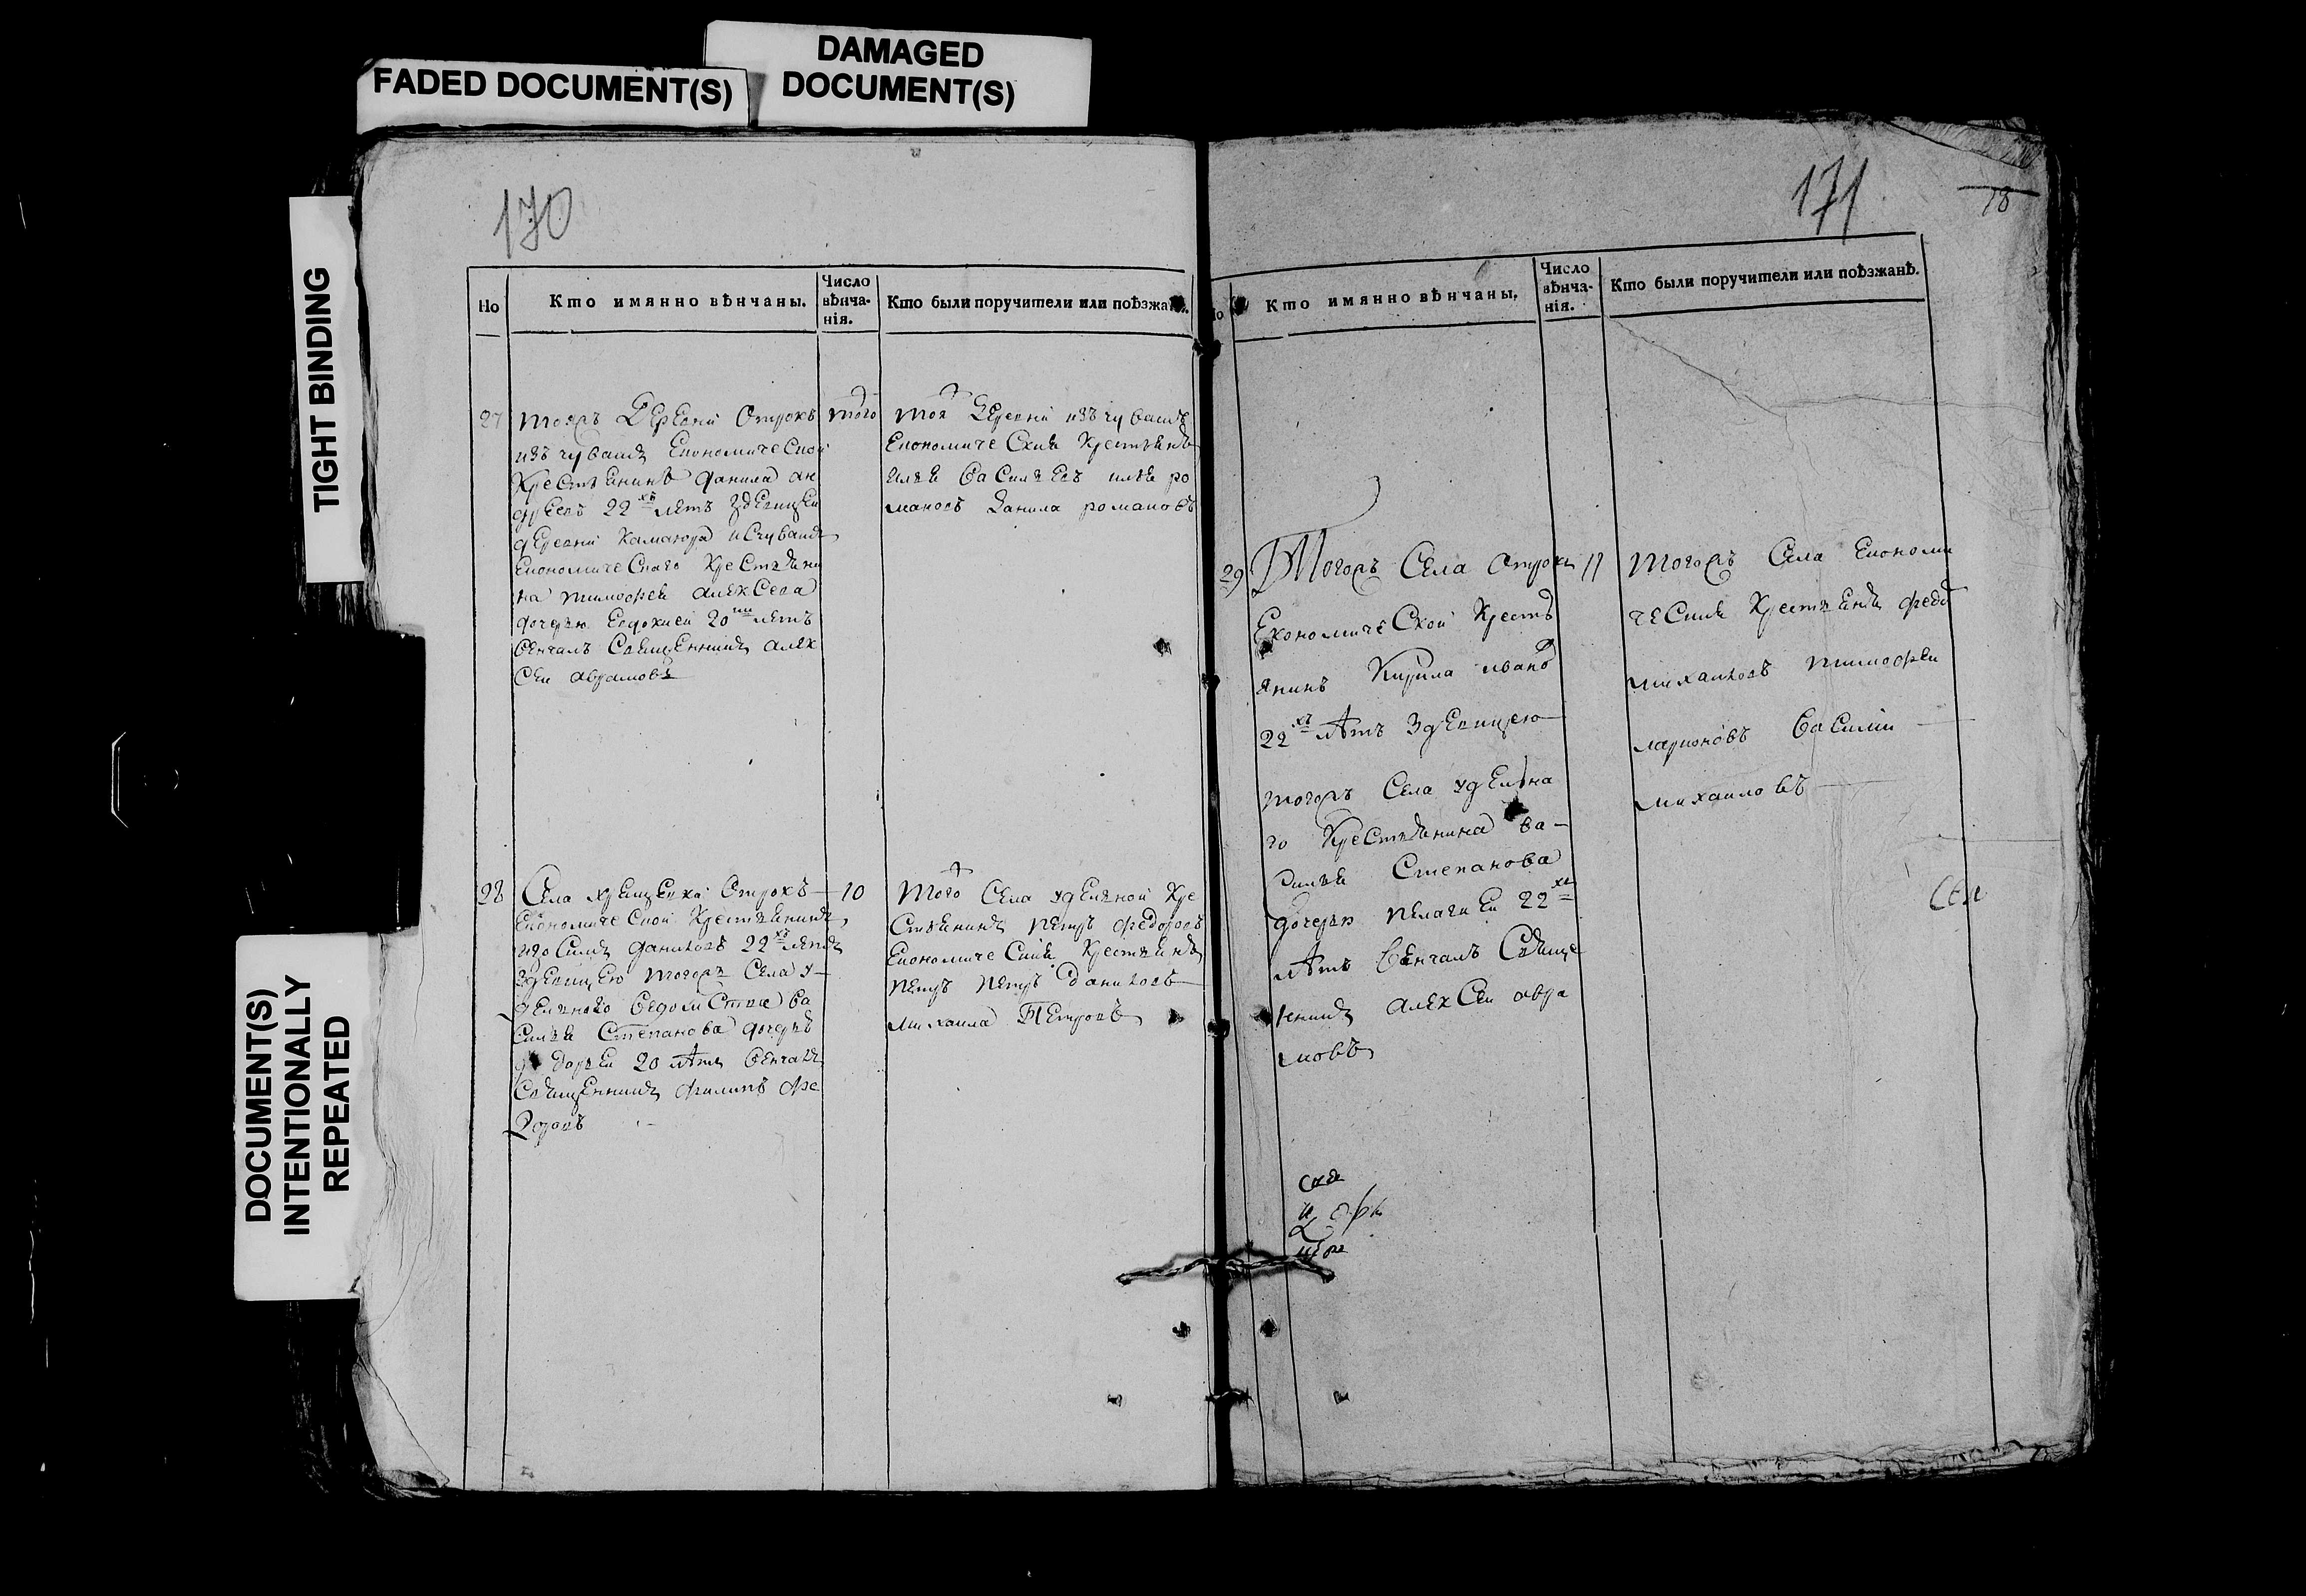 DAMAGED
DOCUMENT(S)
FADED DOCUMENT(S)
TIGHT BINDING
DOCUMENT(S)
INTENTIONALLY
REPEATED
170
Но
Кто имянно вѣнчаны.
Число
вѣнча-
нія.
Кто были поручители или поѣзжанѣ.
27
тояжъ Деревни Отрокъ
изъ чувашъ Економической
Крестьянинъ Данила Ан
дреевъ 22хъ летъ здевицеи
деревни исчувашъ
Економическаго Крестьяни
на тимофея алексеева
дочерью Евдокиеи 20ти летъ
венчалъ Священникъ алек
сеи аврамовъ
того
тоя Деревни изъ чувашъ
Економические Крестьянѣ
илья Васильевъ илья ро
мановъ Данила романовъ
28
Села хрещенка Отрокъ
Економической Крестьянинъ
Даниловъ 22хъ летъ
здевицею тогожъ Села у
дельного ведомства ва
силья Степанова дочерью
дарьеи 20 летъ венчалъ
Священникъ филипъ фе
доровъ
10
того Села удельной Кре
стьянинъ петръ федоровъ
Економические Крестьянѣ
петръ петръ даниловъ
михаила Петровъ
171
78
Кто имянно вѣнчаны.
Число
вѣнча-
нія.
Кто были поручители или поѣзжанѣ.
29
Тогожъ Села отрокъ
Економической Кресть
янинъ Кирила иванъ
22хъ летъ здевицею
тогожъ Села удельна
го Крестьянина ва
силья Степанова
дочерью пелагиеи 22хъ
летъ венчалъ Свяще
нникъ алексеи авра
мовъ
11
тогожъ Села Економи
ческие Крестьянѣ федо
михаиловъ тимофеи
ларионовъ Василии
михаиловъ
Сеи